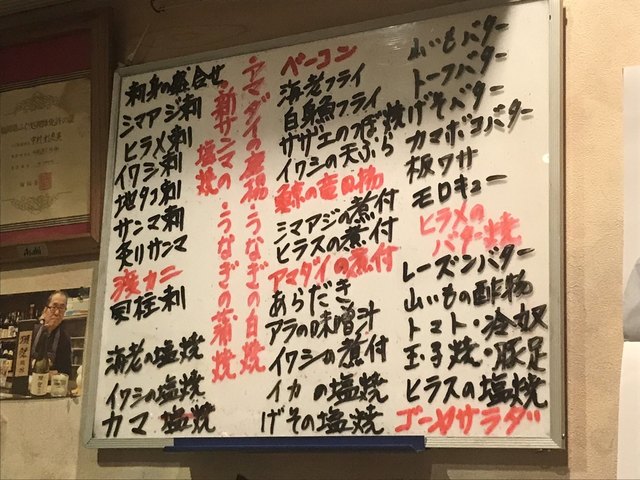 刺身の盛合せ
シマアジ刺
ヒラメ刺
イワシ刺
地タコ刺
サンマ刺
炙りサンマ
渡カニ
貝柱刺
海老の塩焼
イワシの塩焼
カマ塩焼
・アマダイの唐揚・うなぎの白焼
・新サンマの塩焼
・うなぎの蒲焼
ベーコン
海老フライ
白身魚フライ
サザエのつぼ焼
イワシの天ぷら
鯨の竜田揚
シマアジの煮付
ヒラスの煮付
アマダイの煮付
あらだき
アラの味噌汁
イワシの煮付
イカの塩焼
げその塩焼
山いもバター
トーフバター
げそバター
カマボコバター
板ワサ
モロキュー
ヒラメの
バター焼
レーズンバター
山いもの酢物
トマト・冷奴
玉子焼・豚足
ヒラスの塩焼
ゴーヤサラダ
Asahi